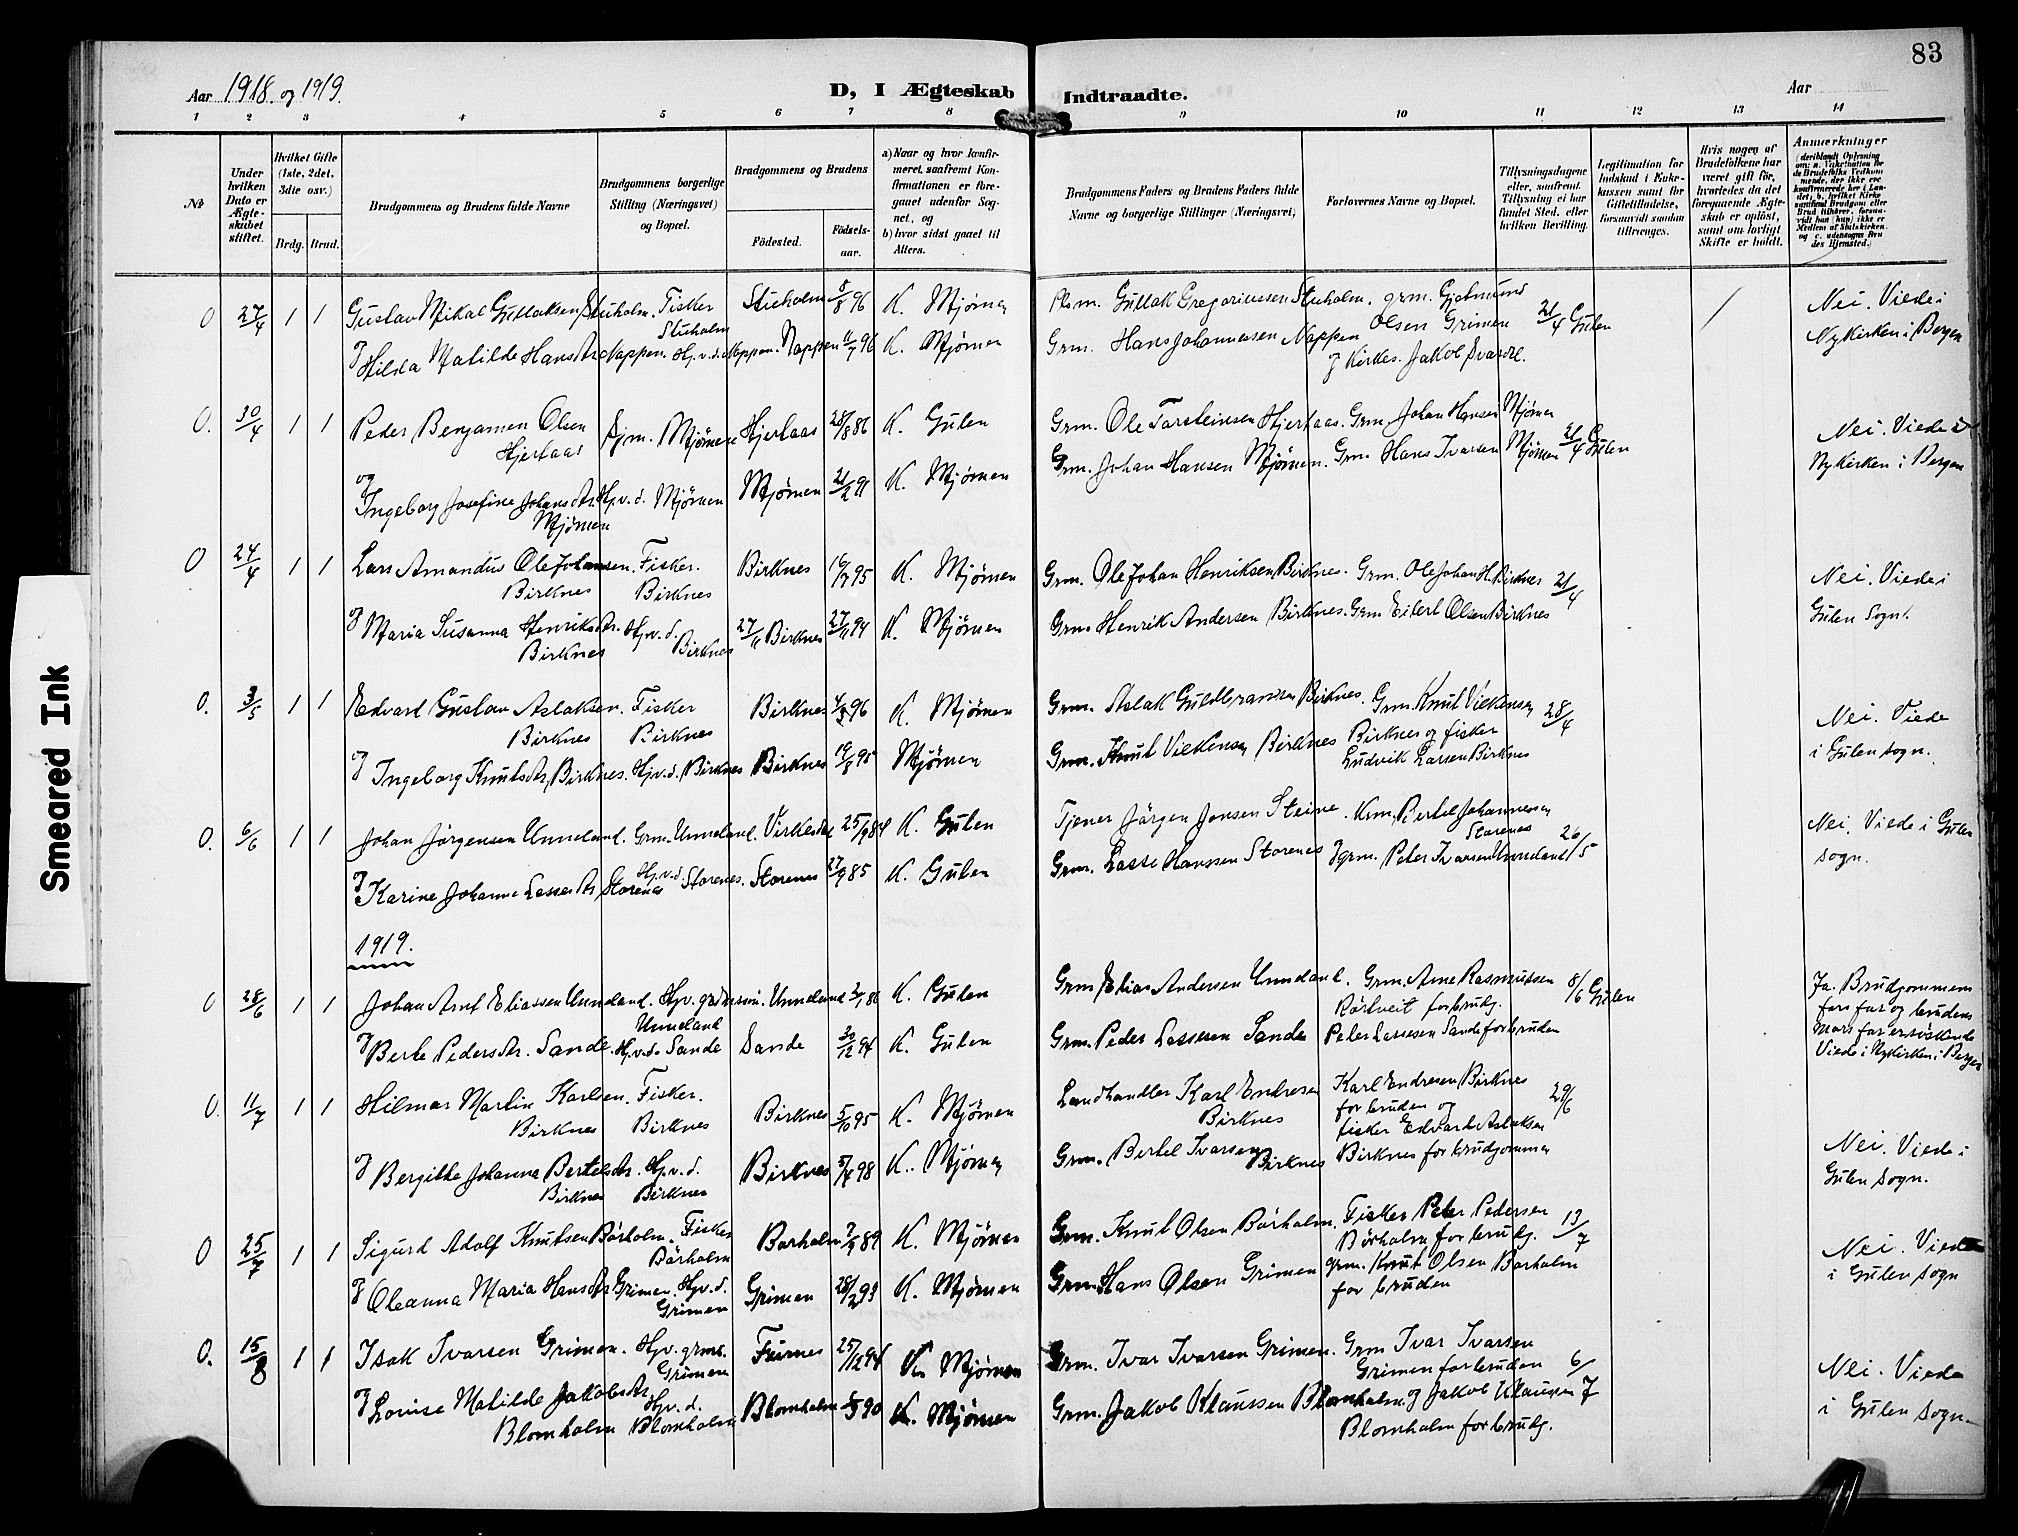 83
Aar 1918. og 1919.
D, I Ægteskab Indtraadte.
Aar
1 2 3 4 5 6 7 8 9 10 11 12 13 14
No
Under hvilken Dato er Ægteskabet stiftet.
Hvilket Gifte (1ste, 2det, 3die osv.)
Brdg. Brud.
Brudgommens og Brudens fulde Navne
Brudgommens borgerlige Stilling (Næringsvei) og Bopæl.
Brudgommens og Brudens
Födested.
Födselsaar.
a) Naar og hvor konfirmeret, saafremt Konfirmationen er foregaaet udenfor Sognet, og
b) hvor sidst gaaet til Alters.
Brudgommens Faders og Brudens Faders fulde Navne og borgerlige Stillinger (Næringsvei)
Forlovernes Navne og Bopæl.
Tillysningsdagene eller, saafremt Tillysning ei har fundet Sted, efter hvilken Bevilling.
Legitimation for Indskud i Enkekassen samt for Giftetilladelse, forsaavidt saadan tiltrænges.
Hvis nogen af Brudefolkene har været gift för, hvorledes da det foregaaende Ægteskab er oplöst, samt om lovligt Skifte er holdt.
Anmærkninger
Smeared Ink
O 27/4 1 1 Gustav Mikal Gullaksen Stuholm. Fisker Stuholm Stuholm 8/8 96 K. Mjömen
Plsm. Gullak Gregoriussen Stuholm. grm. Gjetmund Olsen Grimen 21/4 Gulen Nei. Viede i
og Hilda Matilde Hansdtr Nappen. Hjv. d. Nappen. Nappen 11/7 96 K. Mjömen
Grm. Hans Johannessen Nappen og Kirkes. Jakob Svardal. Nykirken i Bergen
O. 30/4 1 1 Peder Benjamen Olsen Hjertaas Mjömen Hjertaas 28/8 86 K. Gulen
Grm. Ole Torsteinsen Hjertaas. Grm. Johan Hansen Mjömen Nei. Viede i
og Ingeborg Josefine Johansdtr. Mjömen Hjv. d. Mjömen Mjömen 21/2 91 K. Mjömen
Grm. Johan Hansen Mjömen. Grm Hans Ivarsen Mjömen 21/4 Gulen Nykirken i Bergen
O 24/4 1 1 Lars Amandus Ole Johansen. Birknes Fisker. Birknes Birknes 16/7 95 K. Mjömen
Grm. Ole Johan Henriksen Birknes. Grm. Ole Johan H. Birknes 21/4 Nei. Viede i
og Maria Susanna Henriksdtr. Birknes Hjv. d. Birknes 27/11 Birknes 27/11 94 K. Mjömen
Grm Henrik Andersen Birknes. Grm Eilert Olsen Birknes Gulen Sogn.
O. 3/5 1 1 Edvard Gustav Aslaksen. Birknes Fisker Birknes Birknes 96 K. Mjömen
Grm. Aslak Guldbrandsen Birknes. Grm. Knut Vilkensen 28/4 Nei. Viede
og Ingeborg Knutsdtr, Birknes. Hjv. d. Birknes Birknes 19/8 95 Mjömen
Grm. Knut Vilkensen Birknes Birknes og fisker Ludvik Larsen Birknes i Gulen sogn.
O. 6/6 1 1 Johan Jörgensen Unneland. Grm. Unneland. Virkesdal 25/9 84 K. Gulen
Tjener Jörgen Jonsen Steine. Krm. Bertel Johannessen Storenes 26/5 Nei. Viede i Gulen
og Karine Johanne Lassesdtr, Storenes Hjv. d. Storenes. Storenes 27/9 85 K. Gulen
Grm. Lasse Hanssen Storenes og grm. Peter Ivarsen Unneland sogn.
1919.
O 28/6 1 1 Johan Arnt Eliassen Unneland. Hjv. grdm. sön. Unneland Unneland 86 K. Gulen
Grm Elias Andersen Unneland. Grm. Arne Rasmussen Rörtveit for brudg. 8/6 Gulen Ja. Brudgommens farfar og brudens
og Berte Pedersdtr. Sande. Hjv. d. Sande Sande 30/12 94 K. Gulen
Grm. Peder Lassesen Sande Peter Lassesen Sande for bruden Morsfar er söskende Viede i Nykirken i Bergen
O. 11/7 1 1 Hilmar Martin Karlsen. Birknes Fisker. Birknes Birknes 5/10 95 K. Mjömen
Landhandler Karl Endresen Birknes Karl Endresen Birknes for bruden og 29/6
og Bergithe Johanna Bertelsdtr. Birknes Hjv. d. Birknes Birknes 5/4 98 K. Mjömen
Grm. Bertel Ivarsen Birknes fisker Edvard Aslaksen Birknes for brudgommen Nei. Viede i Gulen sogn.
O 25/7 1 1 Sigurd Adolf Knutsen Börholm. Fisker Börholm Borholm 7/9 89 K. Mjömen
Grm. Knut Olsen Börholm. Fisker Peter Pedersen Börholm for brudg. 13/7 Nei. Viede
og Oleanna Maria Hansdtr Grimen. Hjv. d. Grimen Grimen 28/2 93 K. Mjömen
Grm Hans Olsen Grimen grm. Knut Olsen Borholm for bruden i Gulen sogn
O. 15/8 1 1 Isak Ivarsen Grimen. Hjv. grms. Grimen Furnes 25/12 94 K. Mjömen
Grm. Ivar Ivarsen Grimen. Grm Ivar Ivarsen Grimen for bruden 6/7 Nei. Viede
og Lovise Matilde Jakobsdtr. Blomholm Hjv. d. Blomholm Blomholm 90 K. Mjömen
Grm. Jakob Klaussen Blomholm. og Jakob Klausen Blomholm for brudg. i Gulen sogn.